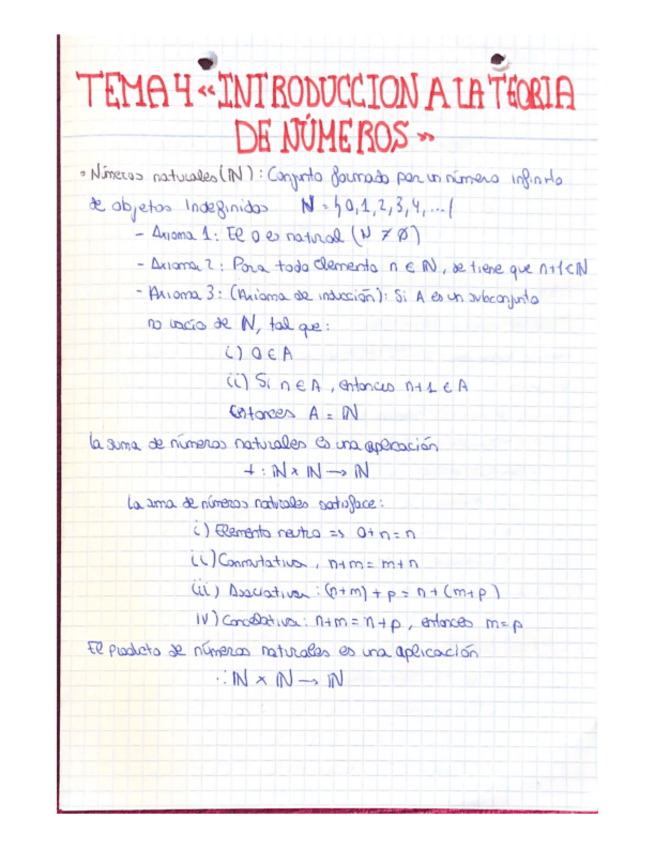 TEMA 4 «INTRODUCCION A LA TEORIA
DE NÚMEROS»
• Números naturales (ℕ): Conjunto formado por un número infinito
de objetos indefinidos ℕ = {0,1,2,3,4,...}
- Axioma 1: El 0 es natural (ℕ ≠ ∅)
- Axioma 2: Para todo elemento n ∈ ℕ, se tiene que n+1 ∈ ℕ
- Axioma 3: (Axioma de inducción): Si A es un subconjunto
no vacío de ℕ, tal que:
i) 0 ∈ A
ii) Si n ∈ A, entonces n+1 ∈ A
Entonces A = ℕ
La suma de números naturales es una aplicación
+ : ℕ × ℕ → ℕ
La suma de números naturales satisface:
i) Elemento neutro => 0+n=n
ii) Conmutativa, n+m = m+n
iii) Asociativa: (n+m)+p = n+(m+p)
iv) Cancelativa: n+m = n+p, entonces m=p
El producto de números naturales es una aplicación
· : ℕ × ℕ → ℕ